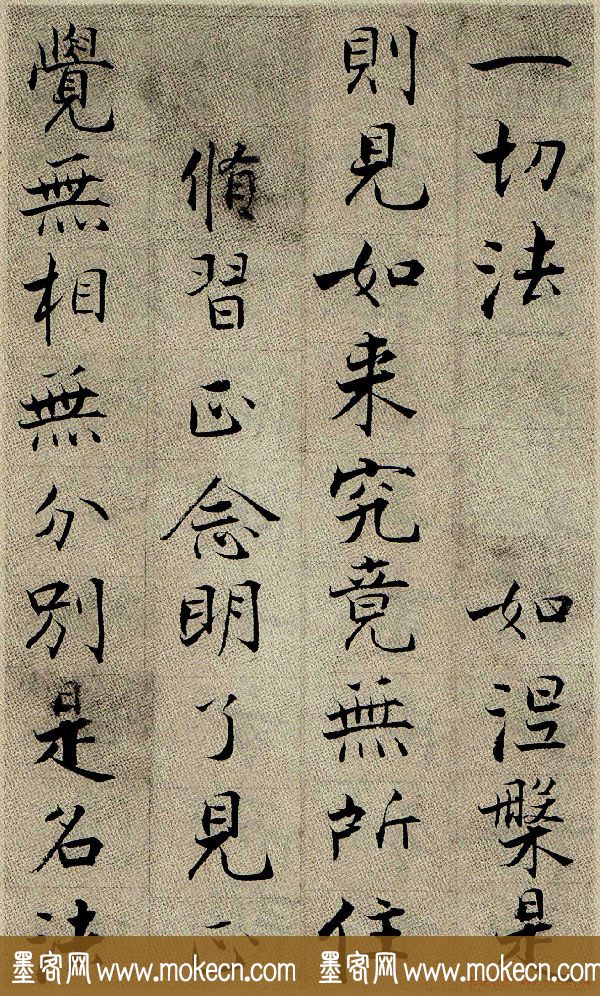 一切法 如涅槃是
則見如来究竟無所住
脩習正念明了見正
覺無相無分别是名法
墨客网 www.mokecn.com 墨客网 www.mokecn.com